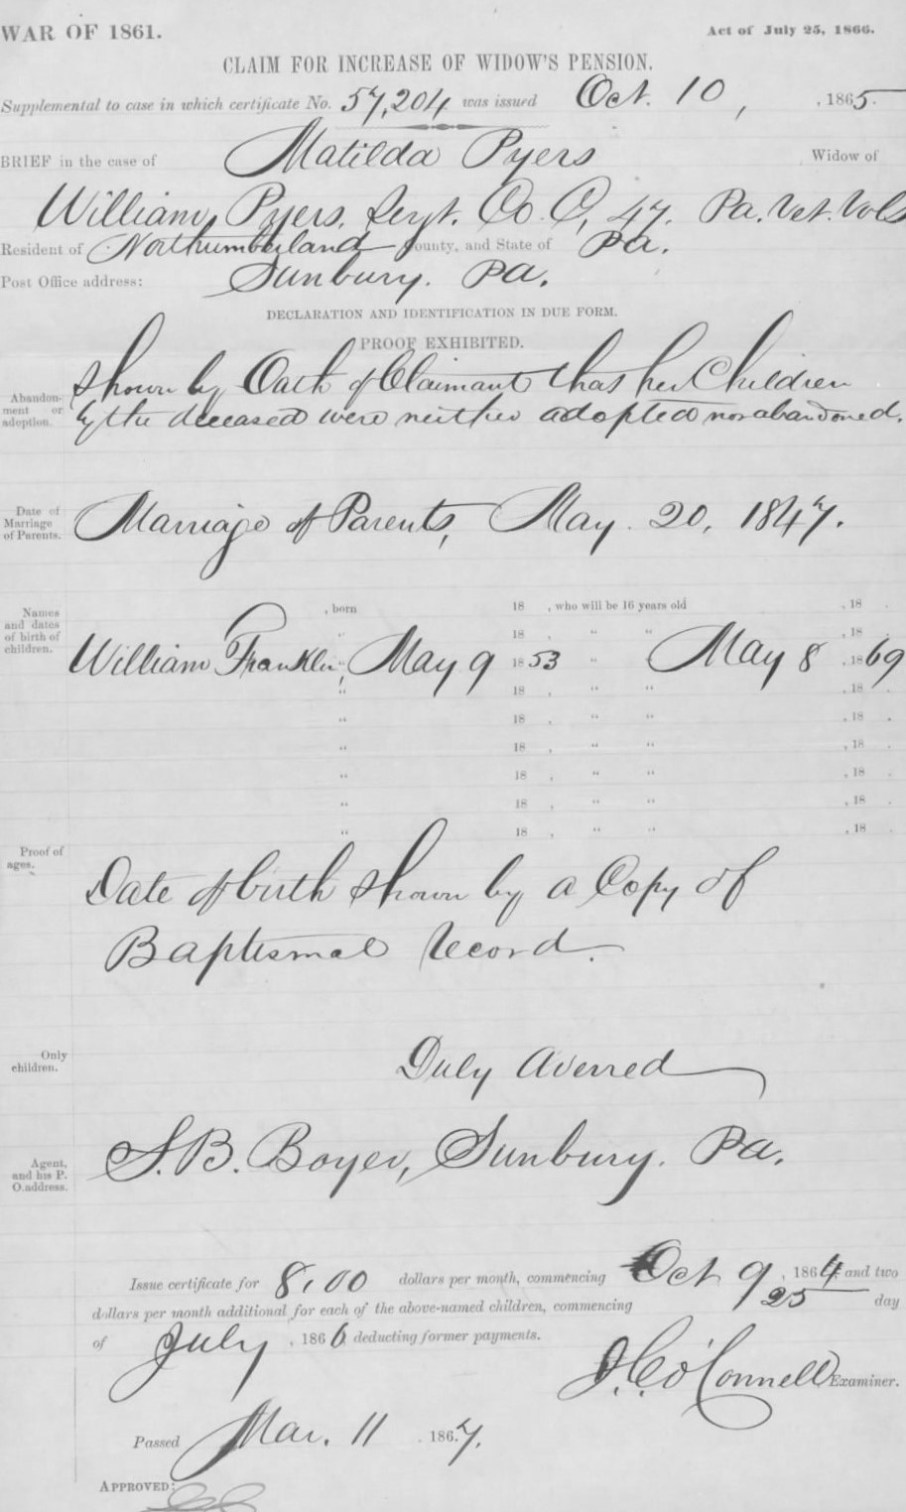 WAR OF 1861.
Act of July 25, 1866.
CLAIM FOR INCREASE OF WIDOW'S PENSION.
Supplemental to case in which certificate No. 57,204 was issued Oct. 10, , 1865.
BRIEF in the case of Matilda Pyers Widow of
William Pyers, Sergt. Co. C, 47. Pa. Vet. Vols
Resident of Northumberland County, and State of Pa.
Post Office address: Sunbury. Pa.
DECLARATION AND IDENTIFICATION IN DUE FORM.
PROOF EXHIBITED.
Abandon-
ment or
adoption.
Shown by Oath of Claimant that her Children
by the deceased were neither adopted nor abandoned.
Date of
Marriage
of Parents.
Marriage of Parents, May. 20, 1847.
Names
and dates
of birth of
children.
, born 18 , who will be 16 years old , 18 .
18 , " " , 18
William Franklin, May 9 1853 " May 8 , 1869
" 18 , " " , 18 .
" 18 , " " , 18 .
" 18 , " " , 18 .
" 18 , " " , 18 .
" 18 , " " , 18 .
" 18 , " " , 18 .
Proof of
ages.
Date of birth shown by a Copy of
Baptismal record.
Only
children.
Duly averred
Agent,
and his P.
O. address.
S. B. Boyer, Sunbury. Pa.
Issue certificate for 8.00 dollars per month, commencing Oct 9 , 1864 and two
dollars per month additional for each of the above-named children, commencing 25 day
of July , 1866 deducting former payments.
J. C. O'Connell Examiner.
Passed Mar. 11 . 1867.
APPROVED: